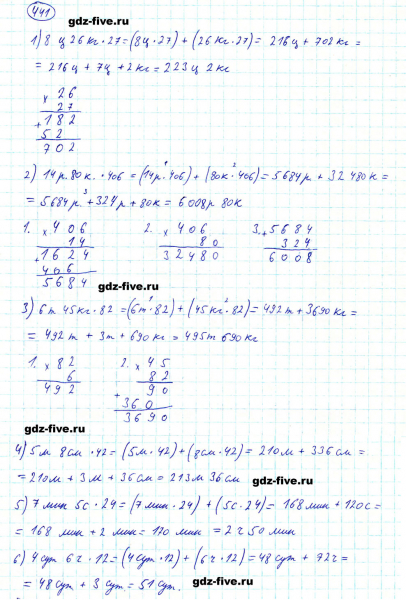 441
gdz-five.ru
1) 8 ц 26 кг · 27 = (8ц · 27) + (26 кг · 27) = 216 ц + 702 кг =
= 216 ц + 7ц + 2 кг = 223 ц 2кг
× 26
27
+ 182
52
702
gdz-five.ru
2) 14р. 80к. · 406 = (14р · 406) + (80к · 406) = 5684р + 32480к =
= 5684р + 324р + 80к = 6008р 80к
1. × 406 2. × 406 3. + 5684
14 80 324
+ 1624 32480 6008
406
5684
gdz-five.ru
3) 6т 45кг · 82 = (6т · 82) + (45кг · 82) = 492т + 3690кг =
= 492т + 3т + 690кг = 495т 690кг
1. × 82 2. × 45
6 82
492 + 90
360
3690
gdz-five.ru
gdz-five.ru
4) 5м 8см · 42 = (5м · 42) + (8см · 42) = 210м + 336см =
= 210м + 3м + 36см = 213м 36см
gdz-five.ru
5) 7мин 5с · 24 = (7мин · 24) + (5с · 24) = 168мин + 120с =
= 168 мин + 2 мин = 170 мин = 2ч 50 мин
6) 4сут 6ч · 12 = (4сут · 12) + (6ч · 12) = 48сут + 72ч =
= 48сут + 3 сут = 51 сут.
gdz-five.ru